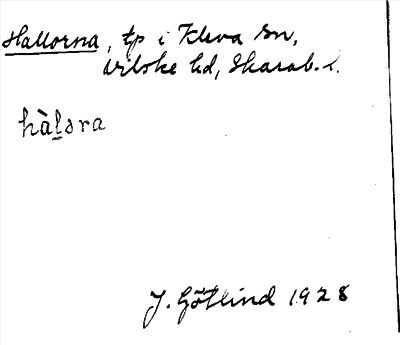 Hallorna, tp i Kleva sn,
Vilske hd, Skarab. l.
hàl̲ɔra
J. Götlind 1928